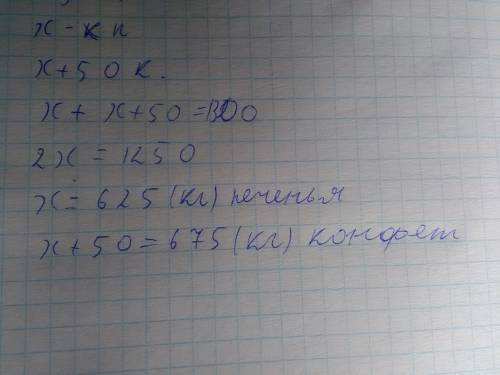 x - к п
x + 50 к.
x + x + 50 = 1300
2x = 1250
x = 625 (кг) печенья
x + 50 = 675 (кг) конфет